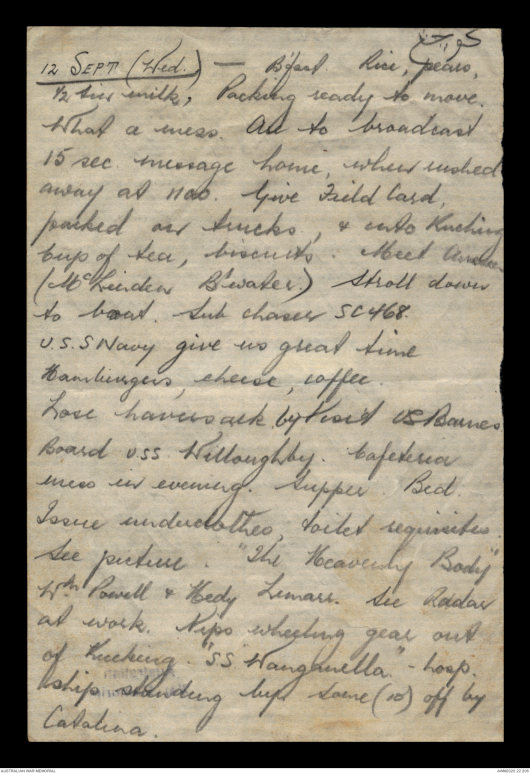 12 SEPT (Wed.) — B'fast Rice, pears,
1/2 tin milk, Packing ready to move.
What a mess. All to broadcast
15 sec. message home, when rushed
away at 1100. Give Field Card,
packed on trucks, & into Kuching
Cup of tea, biscuits. Meet
(McLinden B'water.) Stroll down
to boat. Sub chaser SC 468.
U.S.S Navy give us great time
Hamburgers, cheese, coffee.
Lose haversack by Visit US Barnes
Board U.S.S. Willoughby. Cafeteria
mess in evening. Supper. Bed.
Issue underclothes, toilet requisites.
See picture. "The Heavenly Body"
Wm Powell & Hedy Lemarr. See Radar
at work. Nips wheeling gear out
of Kuching. "SS Wanganella." - hosp.
ship standing by some (10) off by
Catalina.
AUSTRALIAN WAR MEMORIAL